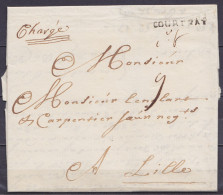 Chargé
COURTRAY
Monsieur
Monsieur Constant
de Carpentier fleur negt
A Lille